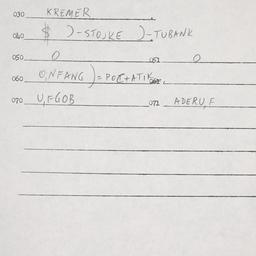 030 KREMER
040 $ )-STOJKE )-TUBANK
050 0 051 0
060 O,NFANG )= POŁ+ATIK
070 U,FGOB 071 ADERU,F